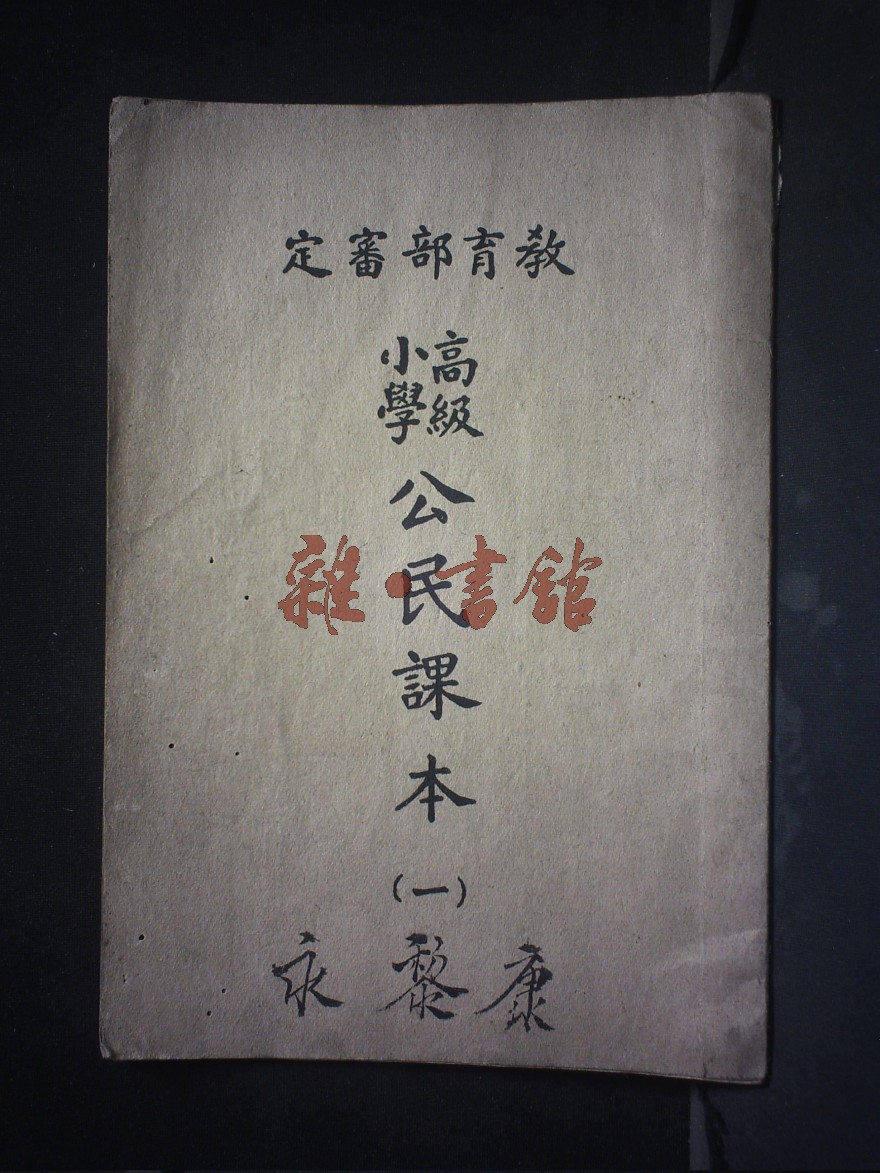 教育部審定
高級
小學
公民課本
(一)
康黎永
雜·書館